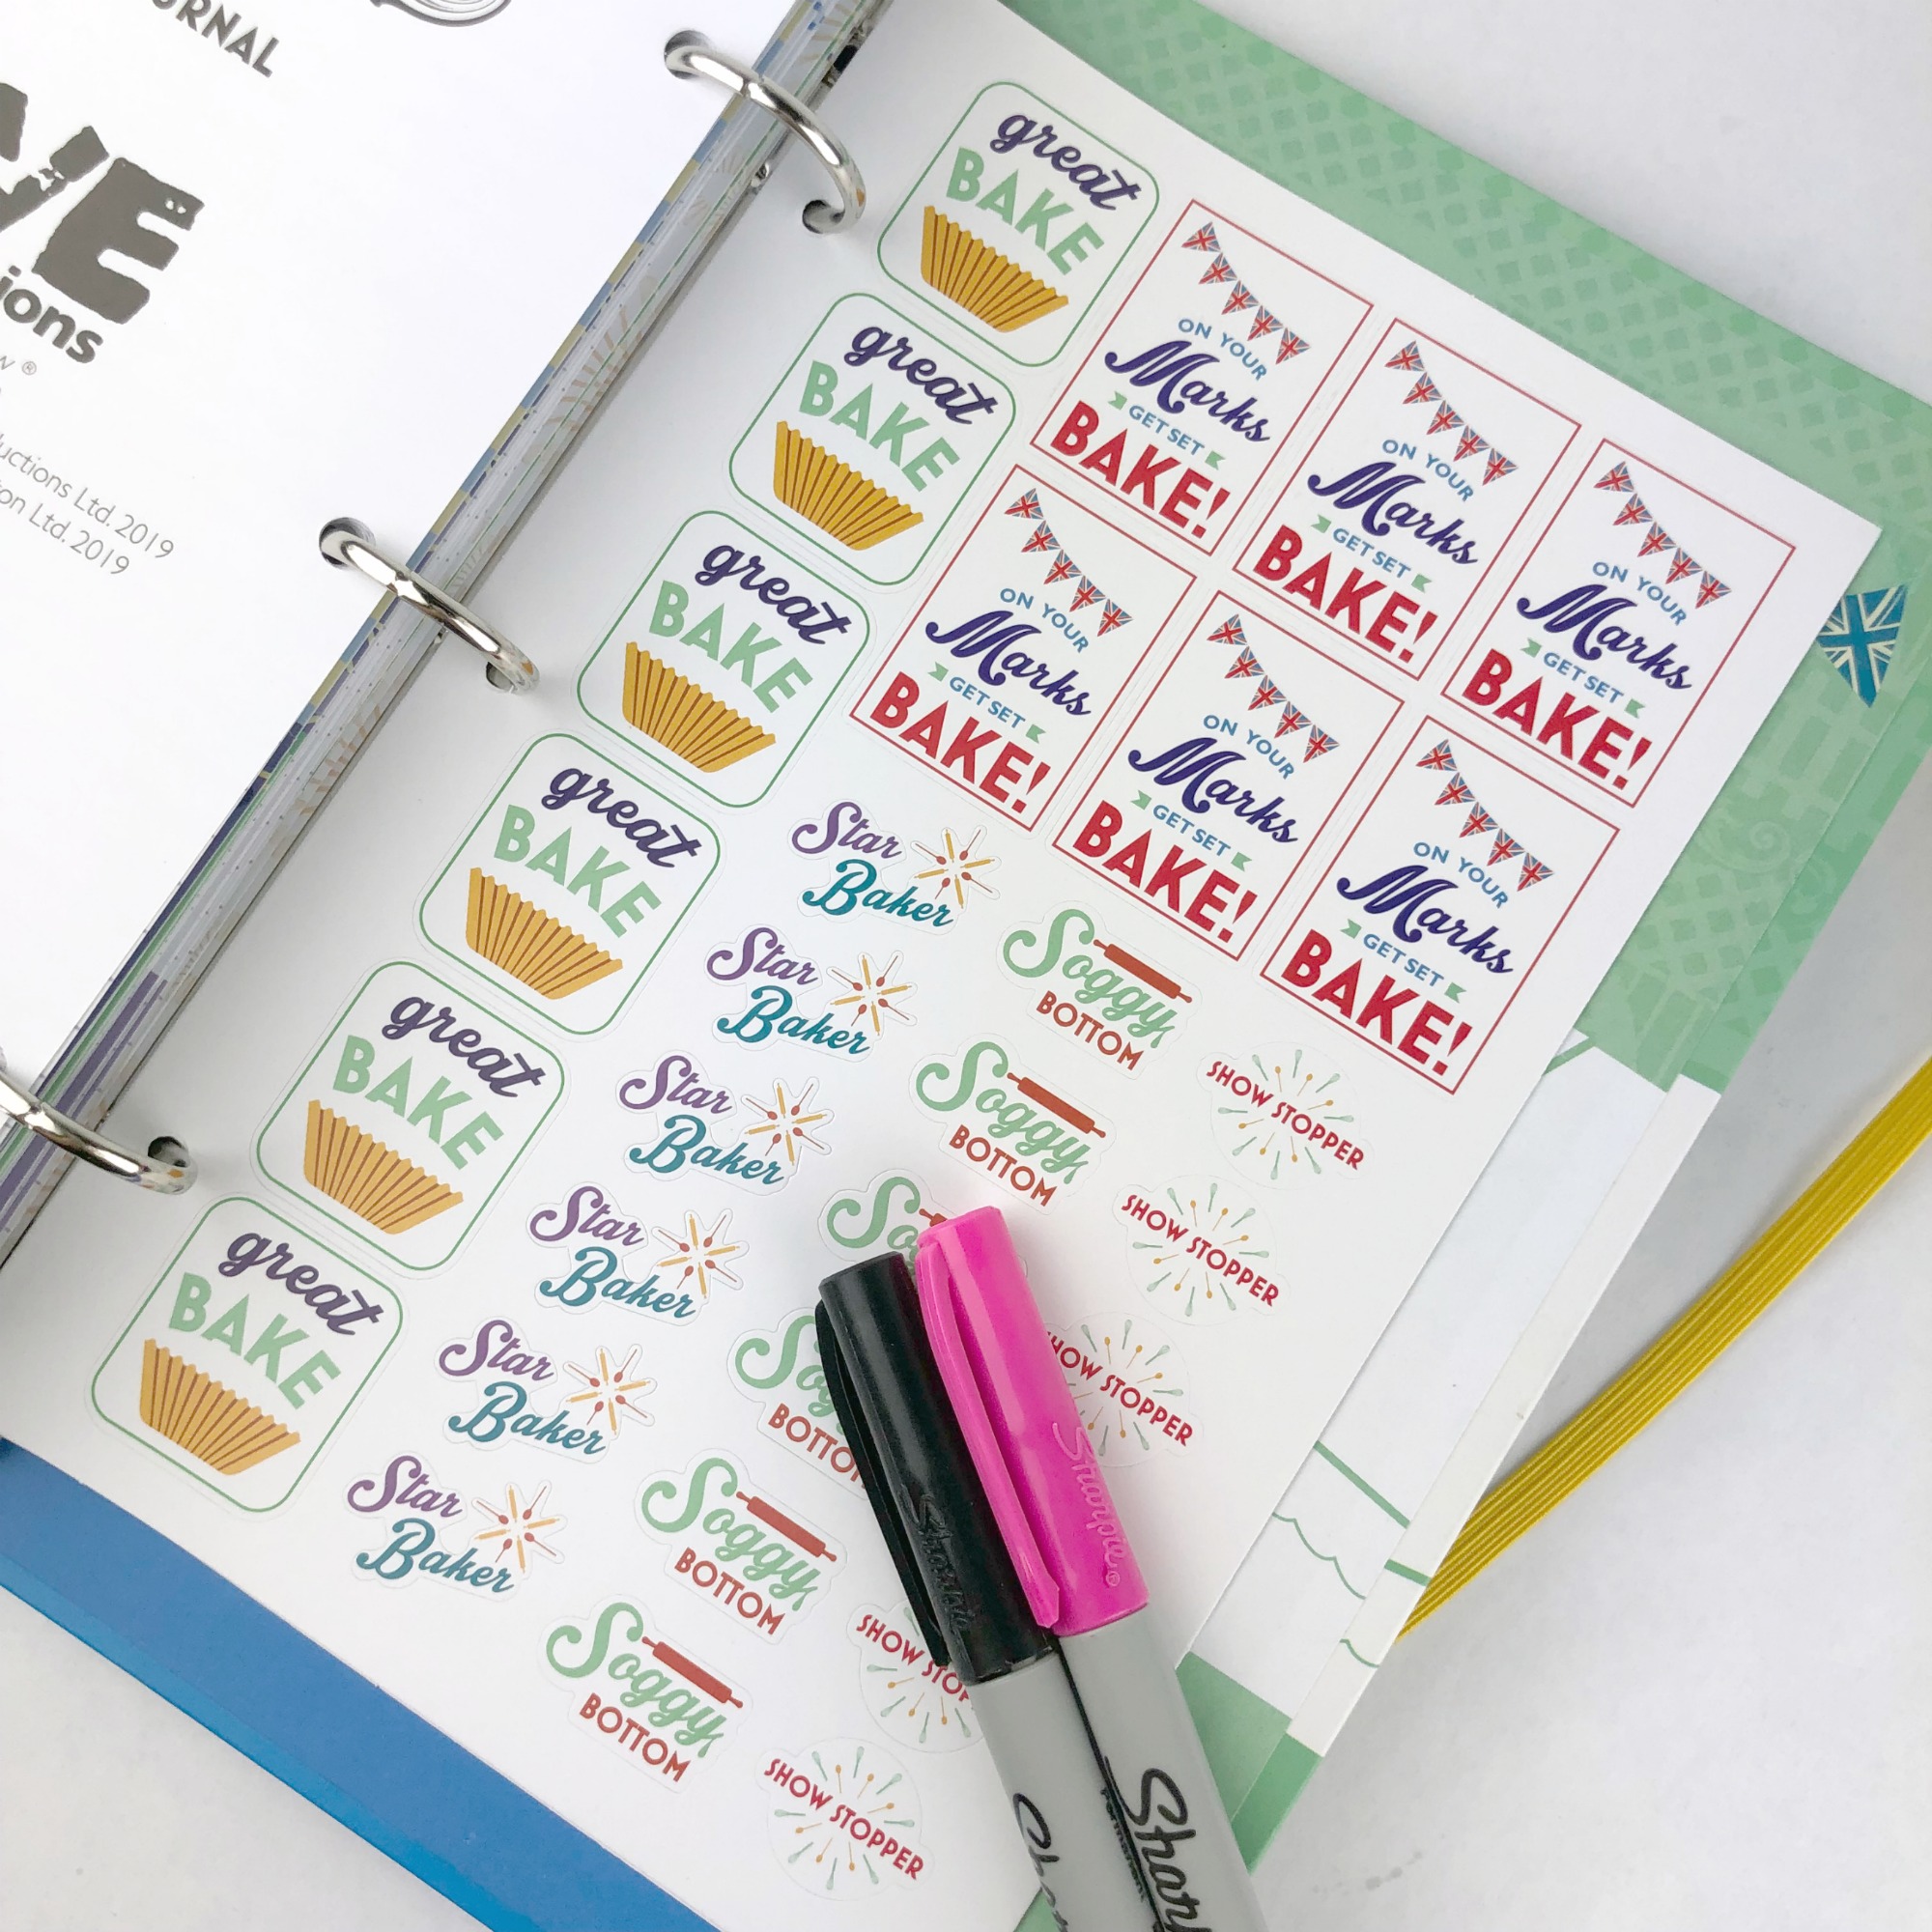 JOURNAL
ions
®
uctions Ltd. 2019
on Ltd. 2019
great
BAKE
great
BAKE
great
BAKE
great
BAKE
great
BAKE
great
BAKE
ON YOUR
Marks
GET SET
BAKE!
ON YOUR
Marks
GET SET
BAKE!
ON YOUR
Marks
GET SET
BAKE!
ON YOUR
Marks
GET SET
BAKE!
ON YOUR
Marks
GET SET
BAKE!
ON YOUR
Marks
GET SET
BAKE!
Star
Baker
Star
Baker
Star
Baker
Star
Baker
Star
Baker
Star
Baker
Soggy
BOTTOM
Soggy
BOTTOM
So
So
BOTTO
Soggy
BOTTOM
Soggy
BOTTOM
SHOW STOPPER
SHOW STOPPER
HOW STOPPER
SHOW STOP
SHOW STOPPER
Sharpie
Sharpie®
Sharp